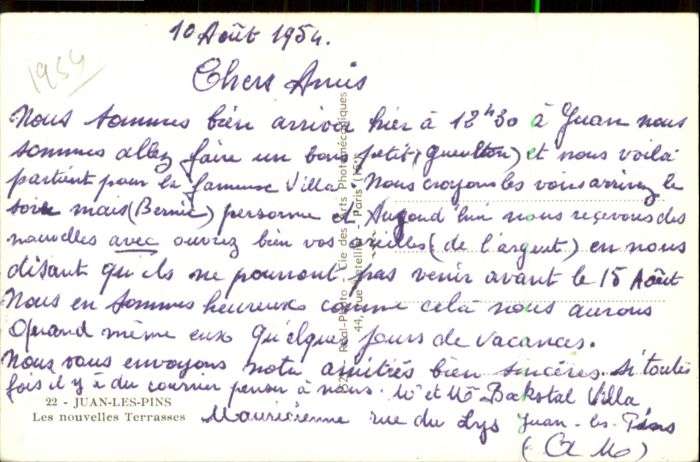 10 Août 1954.
1954
Chers Amis
Nous sommes bien arrivez hier à 12H30 à Juan nous
sommes allez faire un bon petit (gueulton) et nous voilà
partient pour la fameuse Villa Nous croyons les voir arrivez le
soir mais (Bernic) personne et Aujourd hui nous reçevons des
nouvelles avec ouvrez bien vos oreilles (de l'argent) en nous
disant qu'ils ne pourront pas venir avant le 15 Août
Nous en sommes heureux comme celà nous aurons
Quand même eux quelques jours de vacances.
Nous vous envoyons notre amitiés bien sincères. si toutes
fois il y à du courrier penser à nous. Mr et Me Bakstal Villa
Mauricienne rue du Lys Juan-les-Pins
(A M)
22 - JUAN-LES-PINS
Les nouvelles Terrasses
Réal-Photo - Cie des Arts Photomécaniques
44, Rue Letellier - Paris (15e)